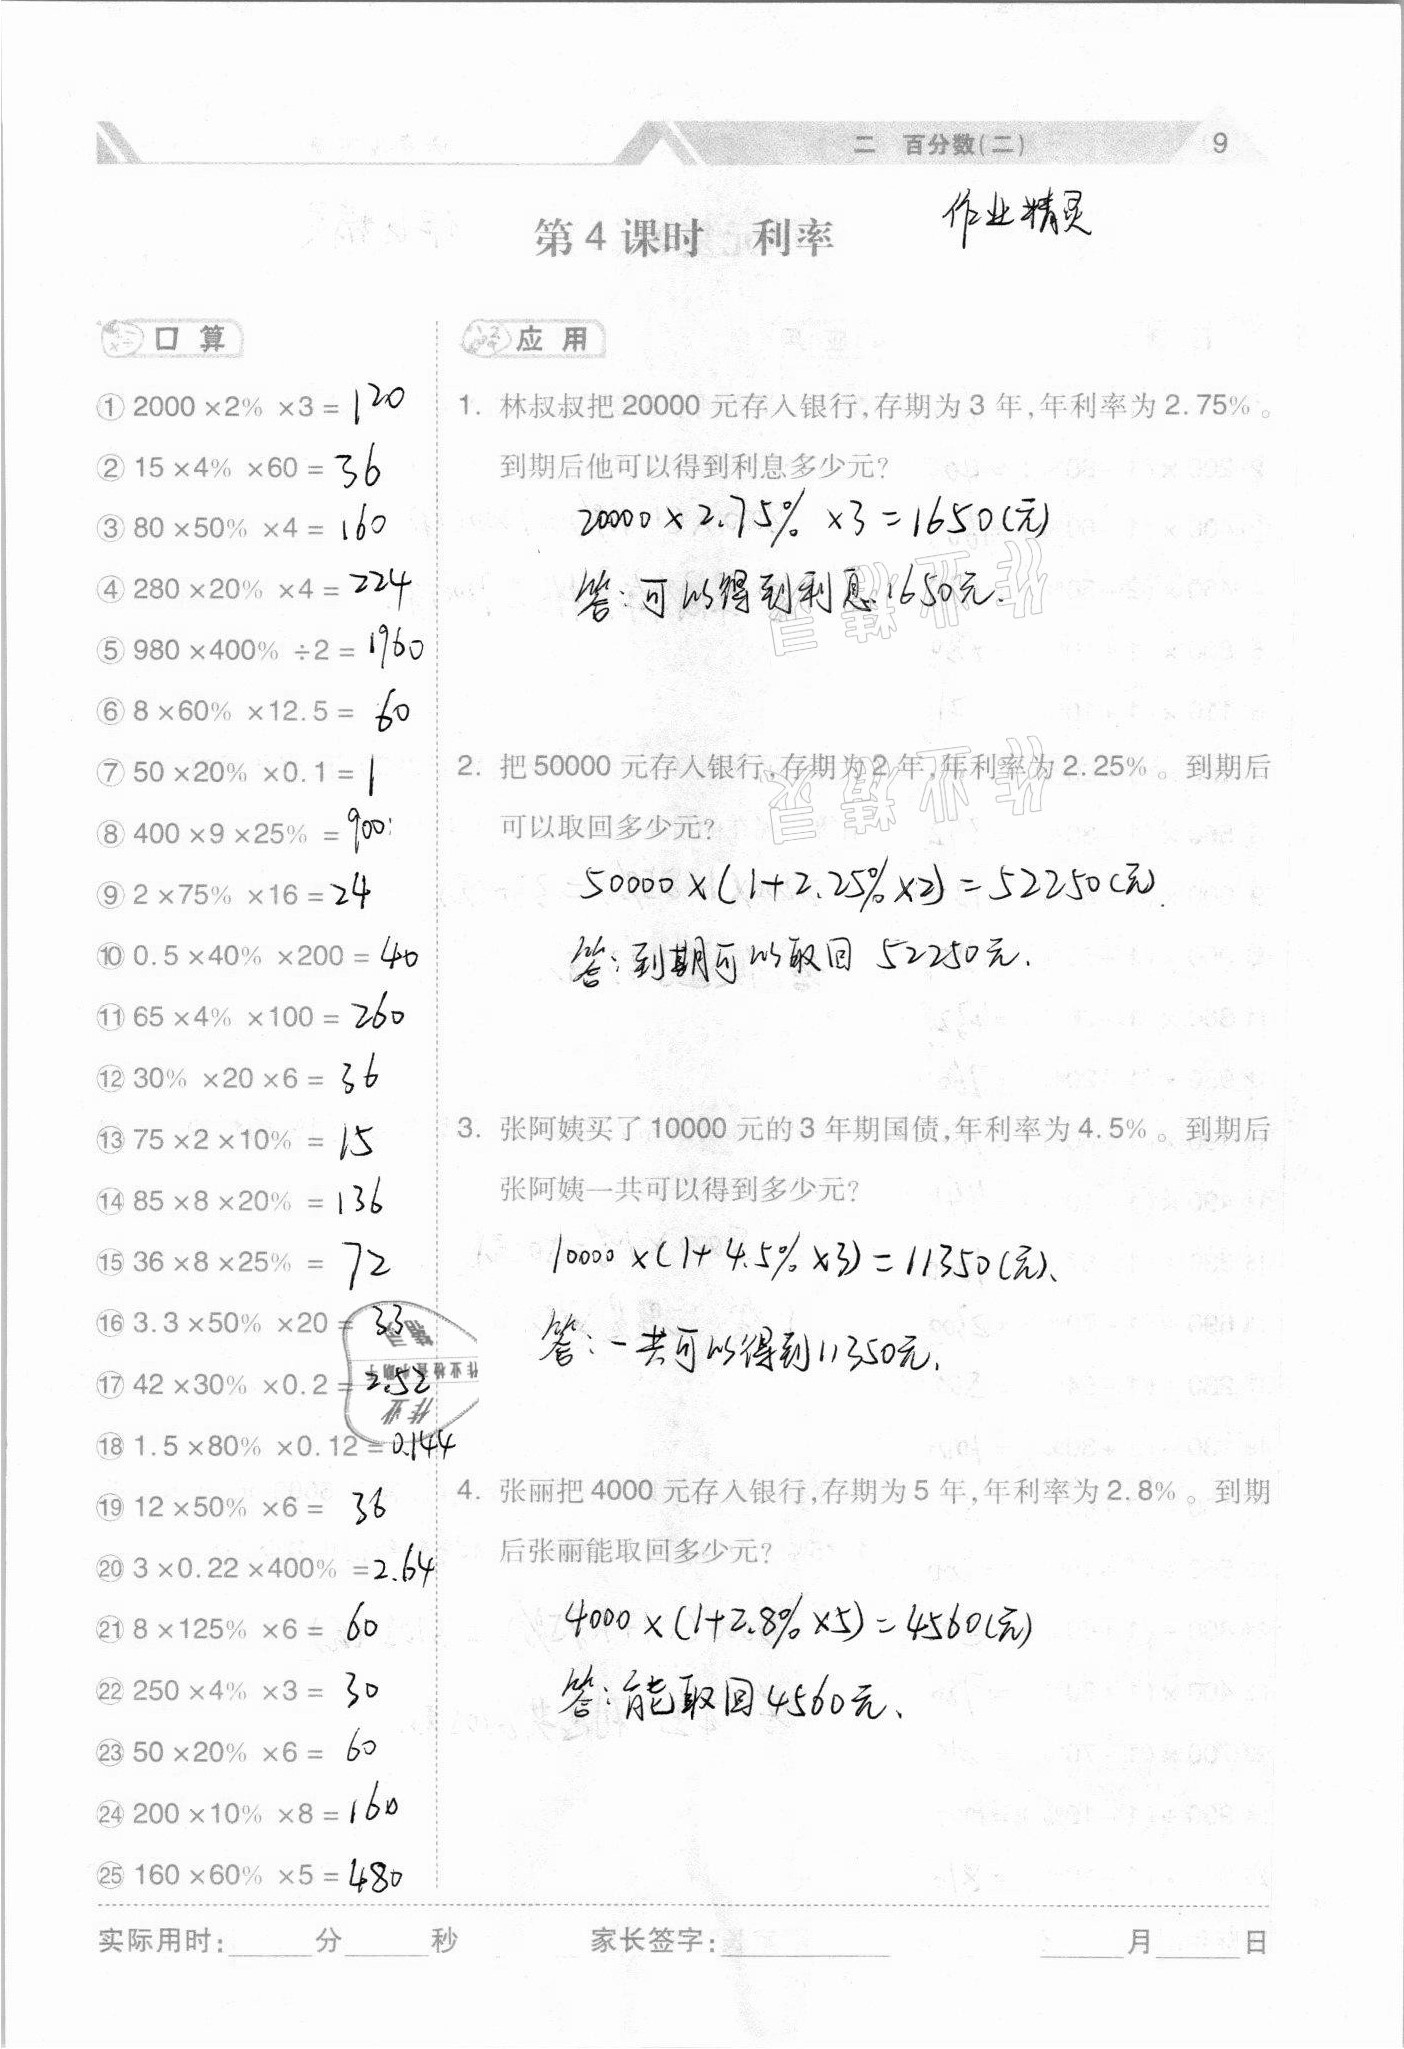 二 百分数(二) 9
作业精灵
第4课时 利率
口算
① 2000×2% ×3=120
② 15×4% ×60=36
③ 80×50% ×4=160
④ 280×20% ×4=224
⑤ 980×400% ÷2=1960
⑥ 8×60% ×12.5=60
⑦ 50×20% ×0.1=1
⑧ 400×9×25% =900
⑨ 2×75% ×16=24
⑩ 0.5×40% ×200=40
⑪ 65×4% ×100=260
⑫ 30% ×20×6=36
⑬ 75×2×10% =15
⑭ 85×8×20% =136
⑮ 36×8×25% =72
⑯ 3.3×50% ×20=33
⑰ 42×30% ×0.2=2.52
⑱ 1.5×80% ×0.12=0.144
⑲ 12×50% ×6=36
⑳ 3×0.22×400% =2.64
㉑ 8×125% ×6=60
㉒ 250×4% ×3=30
㉓ 50×20% ×6=60
㉔ 200×10% ×8=160
㉕ 160×60% ×5=480
应用
1. 林叔叔把20000元存入银行,存期为3年,年利率为2.75%。
到期后他可以得到利息多少元?
20000×2.75% ×3=1650(元)
答:可以得到利息1650元.
作业精灵
2. 把50000元存入银行,存期为2年,年利率为2.25%。到期后
可以取回多少元?
作业精灵
50000×(1+2.25%×2)=52250(元)
答:到期可以取回 52250元.
3. 张阿姨买了10000元的3年期国债,年利率为4.5%。到期后
张阿姨一共可以得到多少元?
10000×(1+4.5%×3)=11350(元)、
答:一共可以得到11350元.
4. 张丽把4000元存入银行,存期为5年,年利率为2.8%。到期
后张丽能取回多少元?
4000×(1+2.8%×5)=4560(元)
答:能取回4560元、
实际用时:____分____秒 家长签字:________ ____月____日